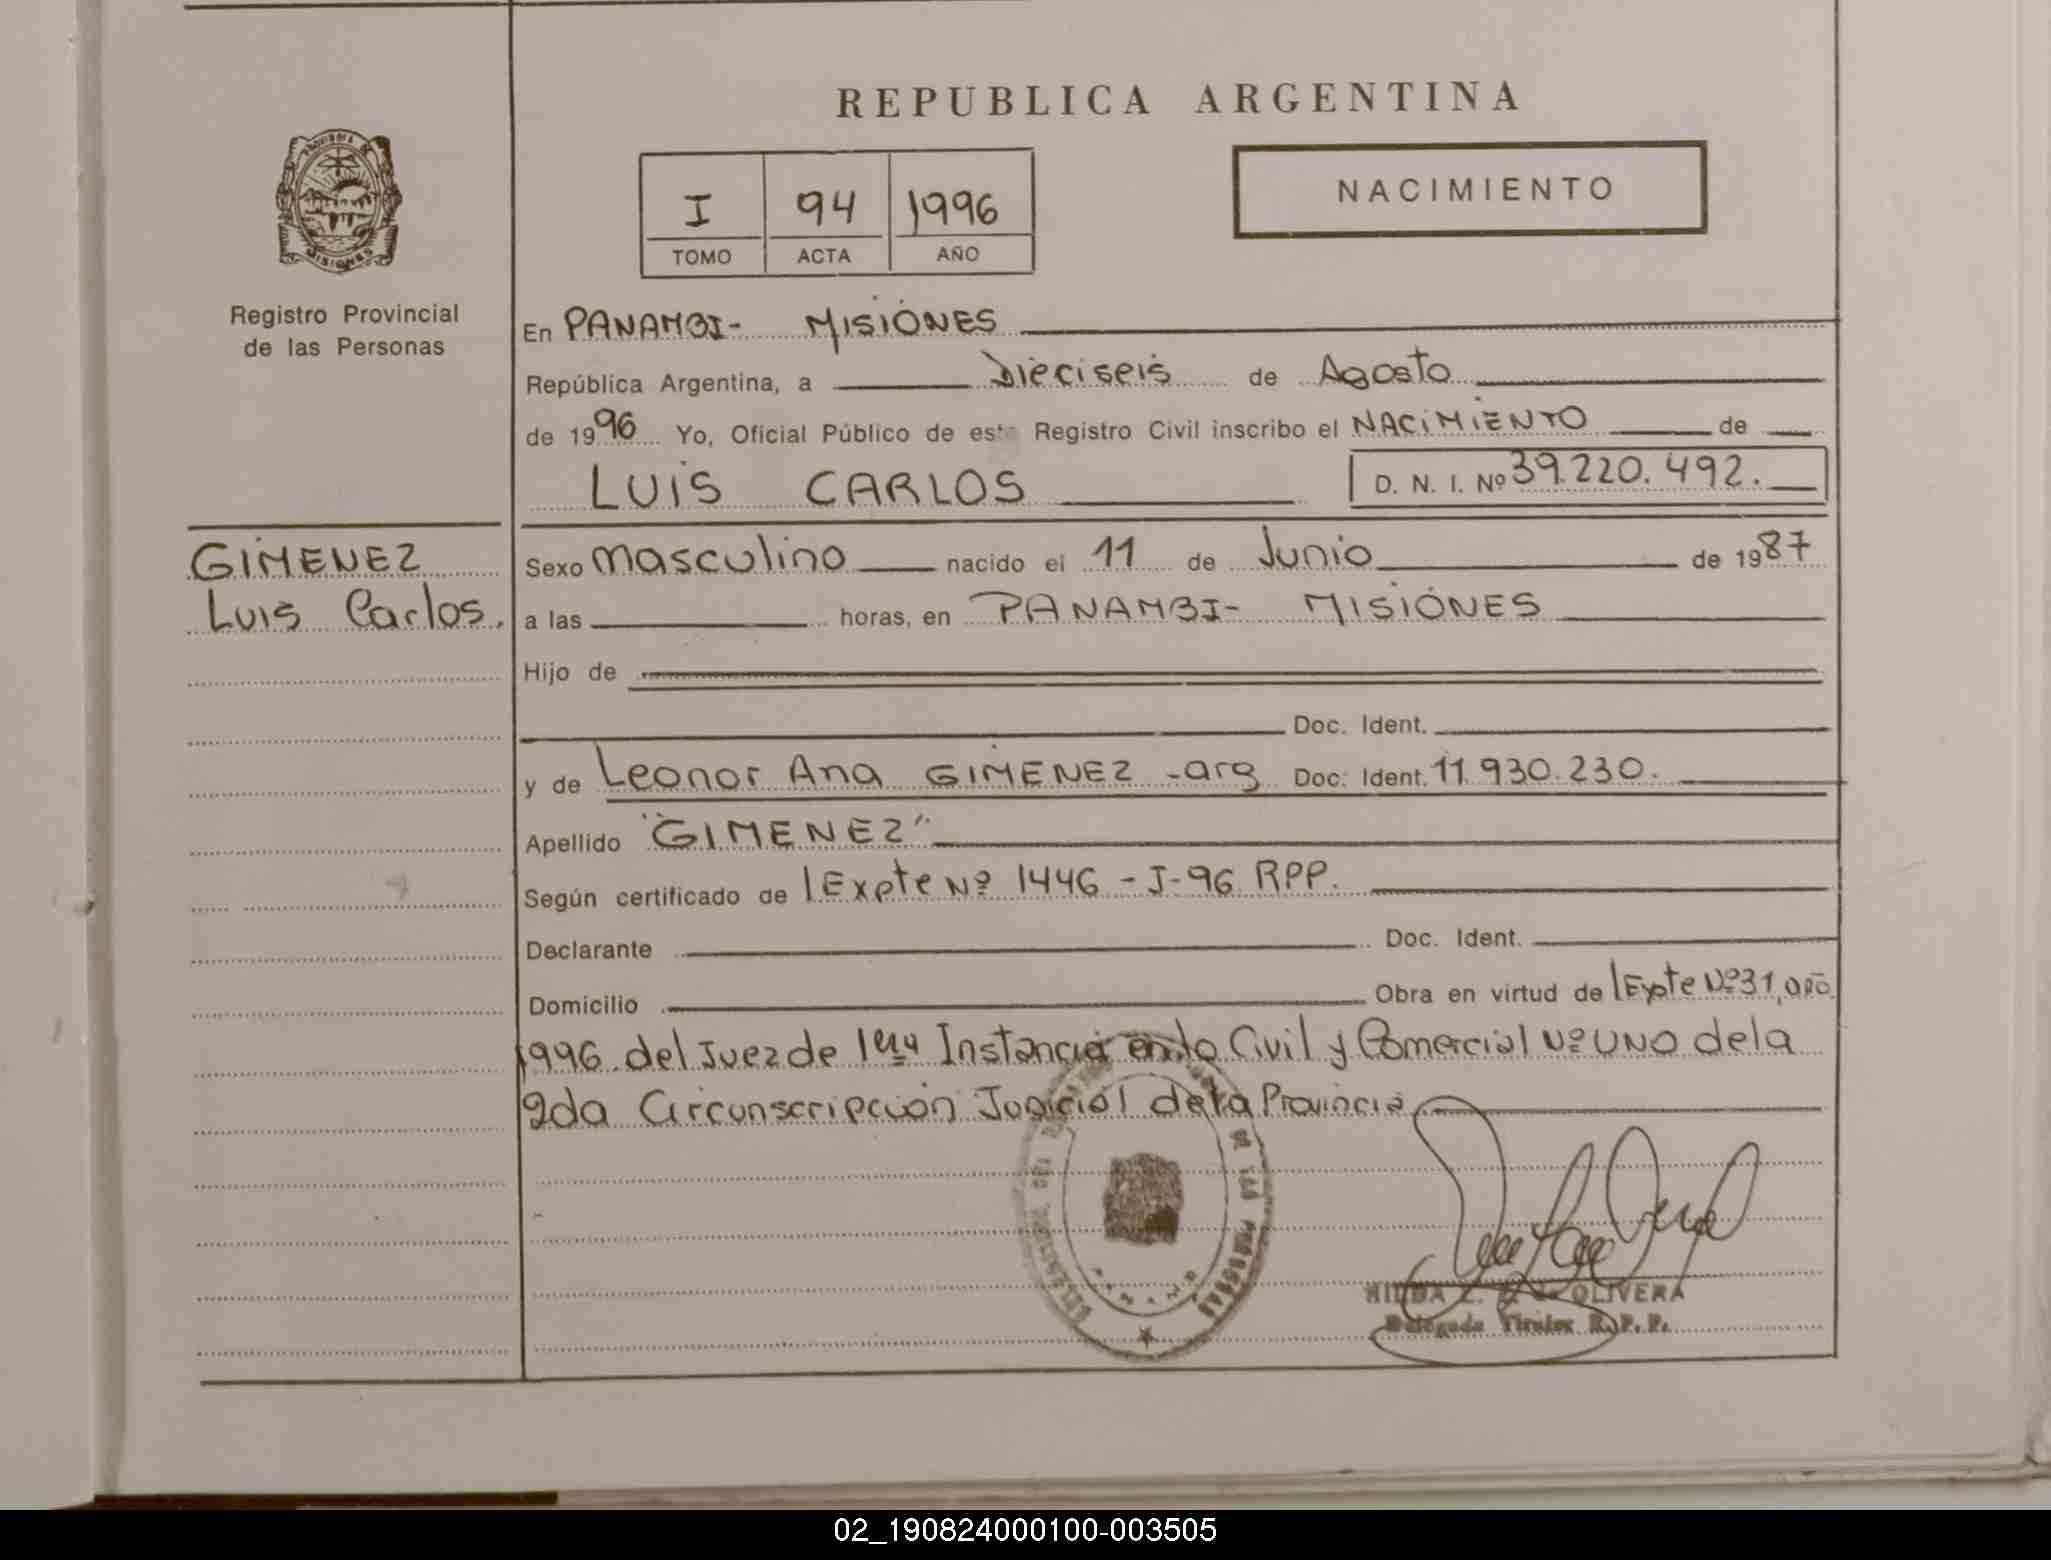 REPUBLICA ARGENTINA
PROVINCIA DE
MISIONES
I 94 1996
TOMO ACTA AÑO
NACIMIENTO
Registro Provincial
de las Personas
En PANAMBI- MISIONES
República Argentina, a Dieciseis de Agosto
de 1996 Yo, Oficial Público de este Registro Civil inscribo el NACIMIENTO de
LUIS CARLOS D. N. I. Nº 39.220.492.
GIMENEZ
Luis Carlos.
Sexo masculino nacido el 11 de Junio de 1987
a las horas, en PANAMBI- MISIONES
Hijo de
Doc. Ident.
y de Leonor Ana GIMENEZ -arg Doc. Ident. 11.930.230.
Apellido "GIMENEZ"
Según certificado de Expte Nº 1446 - J-96 RPP.
Declarante Doc. Ident.
Domicilio Obra en virtud de Expte Nº 31,
1996 del Juez de 1era Instancia en lo Civil y Comercial Nº UNO de la
2da Circunscripción Judicial de la Provincia
HILDA OLIVERA
Delegada Titular R. P. P.
02_190824000100-003505